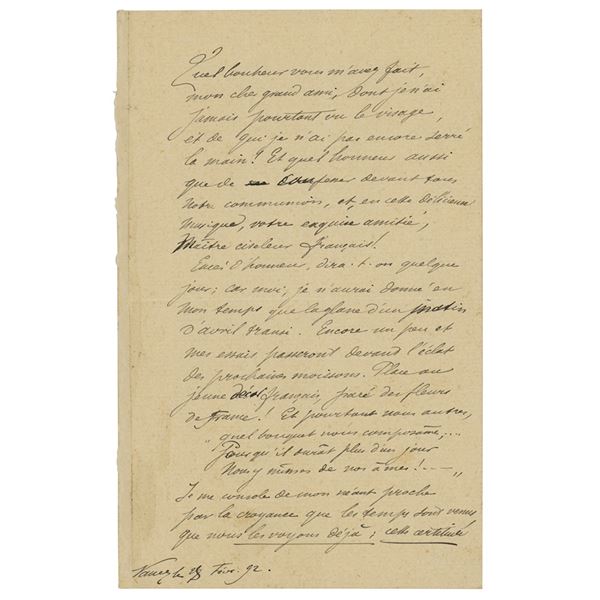 Quel bonheur vous m'avez fait,
mon cher grand ami, dont je n'ai
jamais pourtant vu le visage,
et de qui je n'ai pas encore serré
la main! Et quel honneur aussi
que de confesser devant tous
notre communion, et, en cette délicieuse
musique, votre exquise amitié,
Maître ciseleur français!
Excès d'honneur, dira-t-on quelque
jour; car moi, je n'aurai donné en
mon temps que la glane d'un matin
d'avril transi. Encore un peu et
mes essais passeront devant l'éclat
des prochaines moissons. Place au
jeune français, paré des fleurs
de France! Et pourtant nous autres,
"quel bouquet nous composâmes,...
Pour qu'il durât plus d'un jour
Nous y mîmes de nos âmes!..."
Je me console de mon néant proche
par la croyance que les temps sont venus
que nous les voyons déjà; cette certitude
Nancy, le Févr. 92.